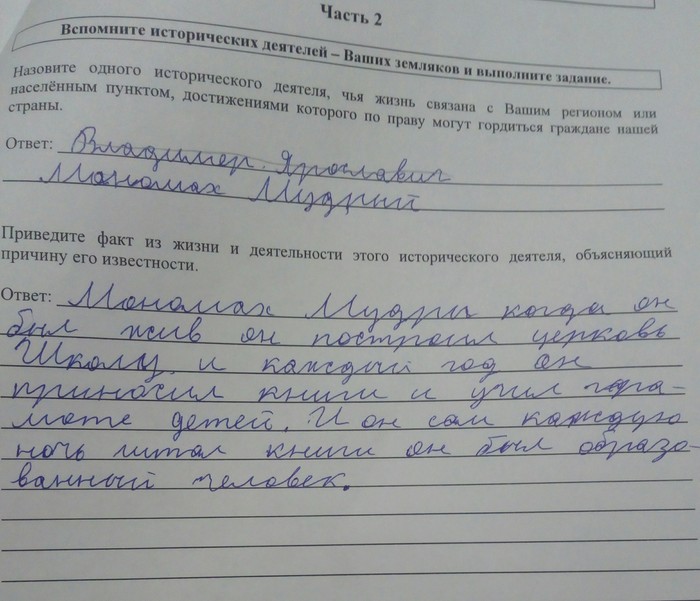 Часть 2
Вспомните исторических деятелей – Ваших земляков и выполните задание.
Назовите одного исторического деятеля, чья жизнь связана с Вашим регионом или
населённым пунктом, достижениями которого по праву могут гордиться граждане нашей
страны.
Ответ: Владимер Ярославич
Мономах Мудрый
Приведите факт из жизни и деятельности этого исторического деятеля, объясняющий
причину его известности.
Ответ: Мономах Мудры когда он
был жив он построил церковь
Школу и каждый год он
приносил книги и учил гра-
моте детей. И он сам каждую
ночь читал книги он был образо-
ванный человек.